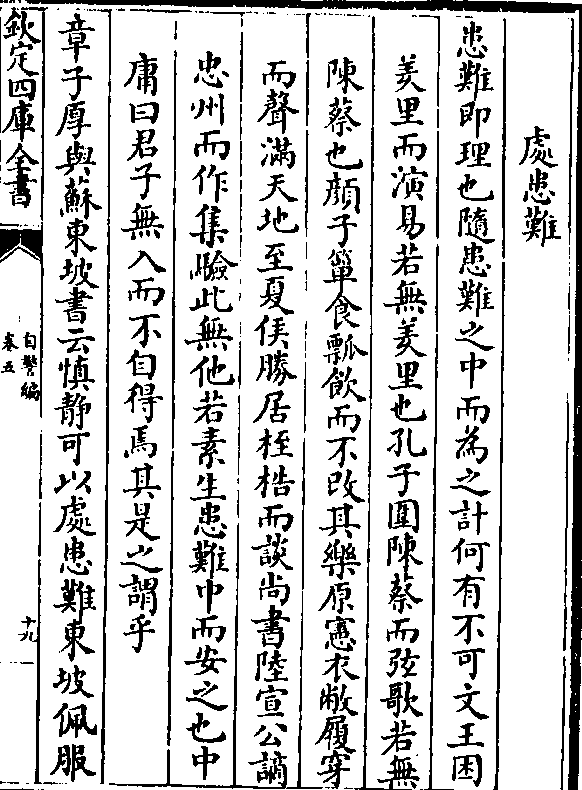 處患難
患難即理也隨患難之中而為之計何有不可文王困
羑里而演易若無羑里也孔子圍陳蔡而弦歌若無
陳蔡也顔子簞食瓢飲而不改其樂原憲衣敝履穿
而聲滿天地至夏侯勝居桎梏而談尚書陸宣公謫
忠州而作集驗此無他若素生患難中而安之也中
庸曰君子無入而不自得焉其是之謂乎
章子厚與蘇東坡書云慎静可以處患難東坡佩服
欽定四庫全書
自警編
卷五
十九